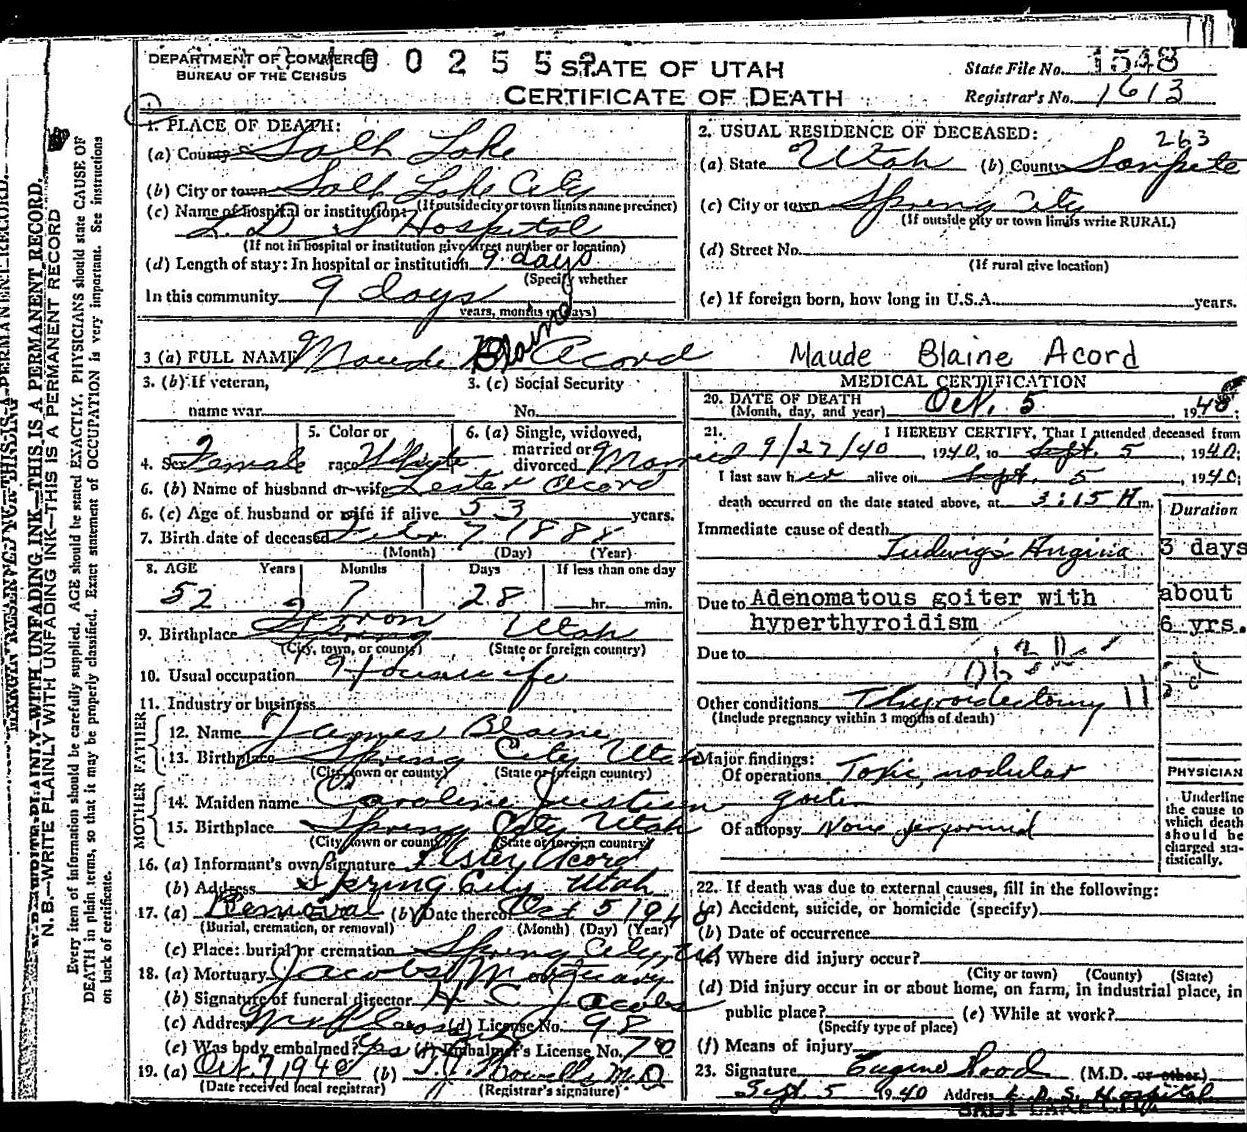 DEPARTMENT OF COMMERCE
BUREAU OF THE CENSUS
0 0 2 5 5
STATE OF UTAH
CERTIFICATE OF DEATH
State File No. 1548
Registrar's No. 1613
1. PLACE OF DEATH:
(a) County Salt Lake
(b) City or town Salt Lake City
(If outside city or town limits name precinct)
(c) Name of hospital or institution:
L. D. S Hospital
(If not in hospital or institution give street number or location)
(d) Length of stay: In hospital or institution 9 days
(Specify whether
In this community 9 days
years, months or days)
2. USUAL RESIDENCE OF DECEASED:
263
(a) State Utah (b) County Sanpete
(c) City or town Spring City
(If outside city or town limits write RURAL)
(d) Street No.
(If rural give location)
(e) If foreign born, how long in U.S.A. years.
3 (a) FULL NAME Maude Blaine Acord Maude Blaine Acord
3. (b) If veteran,
name war
3. (c) Social Security
No.
4. Sex Female
5. Color or
race White
6. (a) Single, widowed,
married or
divorced Married
6. (b) Name of husband or wife Lester Acord
6. (c) Age of husband or wife if alive 53 years.
7. Birth date of deceased Feb 7 1888
(Month) (Day) (Year)
8. AGE Years Months Days If less than one day
52 7 28 hr. min.
9. Birthplace Utah
(City, town, or county) (State or foreign country)
10. Usual occupation Housewife
11. Industry or business
FATHER
12. Name James Blaine
13. Birthplace Spring City Utah
(City, town or county) (State or foreign country)
MOTHER
14. Maiden name Caroline
15. Birthplace Spring City Utah
(City, town or county) (State or foreign country)
16. (a) Informant's own signature Lester Acord
(b) Address Spring City Utah
17. (a) Removal (b) Date thereof Oct 5 1940
(Burial, cremation, or removal) (Month) (Day) (Year)
(c) Place: burial or cremation Spring City, Ut
18. (a) Mortuary Jacobs Mortuary
(b) Signature of funeral director H C Jacobs
(c) Address (d) License No. 98
(e) Was body embalmed? yes (f) Embalmer's License No. 70
19. (a) Oct. 7, 1940 (b) M.D.
(Date received local registrar) (Registrar's signature)
MEDICAL CERTIFICATION
20. DATE OF DEATH
(Month, day, and year) Oct. 5, 1940;
21. I HEREBY CERTIFY, That I attended deceased from
9/27/40, 1940, to Sept. 5, 1940;
I last saw her alive on Sept. 5, 1940;
death occurred on the date stated above, at 3:15 A m.
Duration
Immediate cause of death
Ludwig's Angina 3 days
Due to Adenomatous goiter with about
hyperthyroidism 6 yrs.
Due to
Other conditions Thyroidectomy
(Include pregnancy within 3 months of death)
Major findings:
Of operations Toxic nodular
goiter
Of autopsy None performed
PHYSICIAN
Underline
the cause to
which death
should be
charged sta-
tistically.
22. If death was due to external causes, fill in the following:
(a) Accident, suicide, or homicide (specify)
(b) Date of occurrence
(c) Where did injury occur?
(City or town) (County) (State)
(d) Did injury occur in or about home, on farm, in industrial place, in
public place? (e) While at work?
(Specify type of place)
(f) Means of injury
23. Signature Eugene Wood (M.D. or other)
Sept. 5 1940 Address L. D. S. Hospital
SALT LAKE CITY
N.B.—WRITE PLAINLY WITH UNFADING INK—THIS IS A PERMANENT RECORD.
N.B.—WRITE PLAINLY WITH UNFADING INK—THIS IS A PERMANENT RECORD
Every item of information should be carefully supplied. AGE should be stated EXACTLY. PHYSICIANS should state CAUSE OF
DEATH in plain terms, so that it may be properly classified. Exact statement of OCCUPATION is very important. See instructions
on back of certificate.